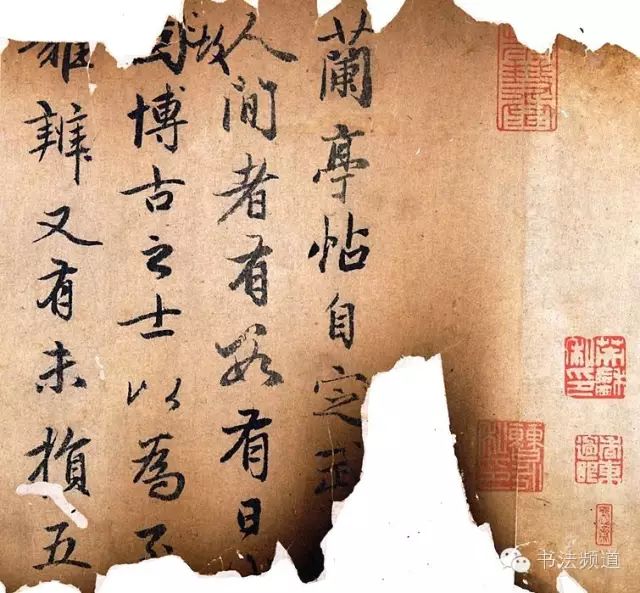 蘭亭帖自定武
人間者有數有日
故
博古之士以為至
難辨又有未損五
书法频道